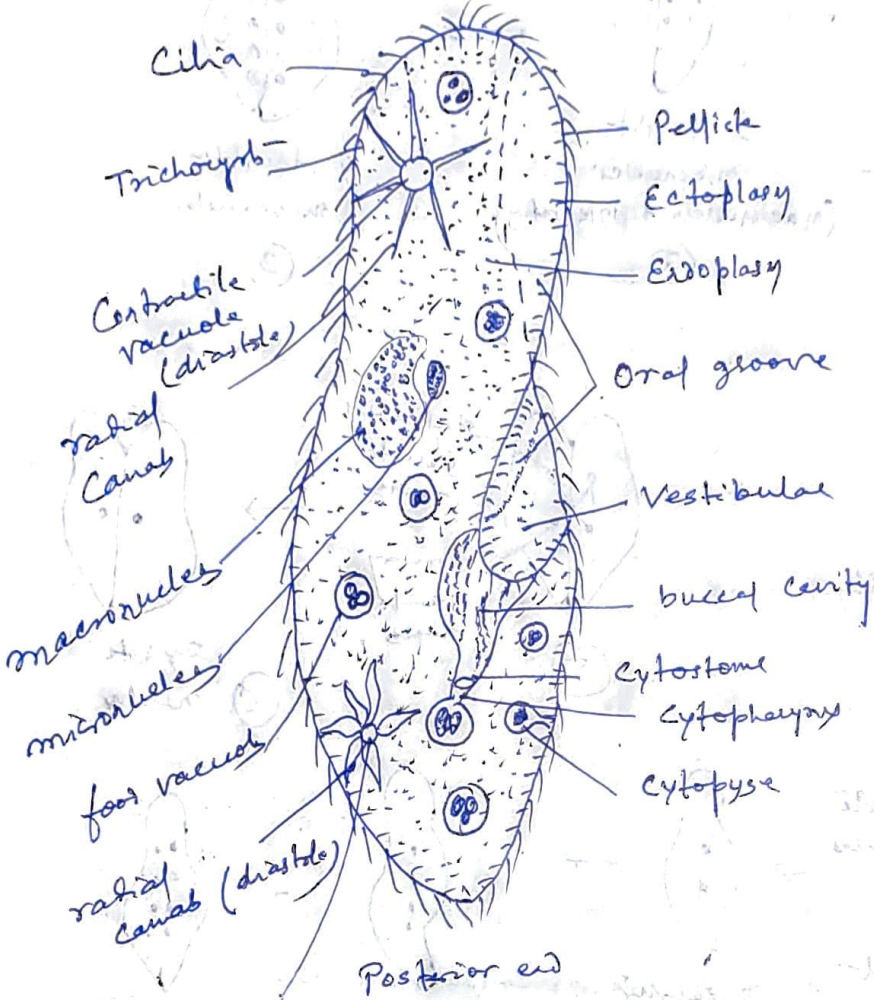 Cilia
Trichocyst
Contractile
vacuole
(diastole)
radial
canals
macronucleus
micronucleus
food vacuole
radial
canals (diastole)
Pellicle
Ectoplasm
Endoplasm
Oral groove
Vestibulae
buccal cavity
Cytostome
Cytopharynx
Cytopyge
Posterior end